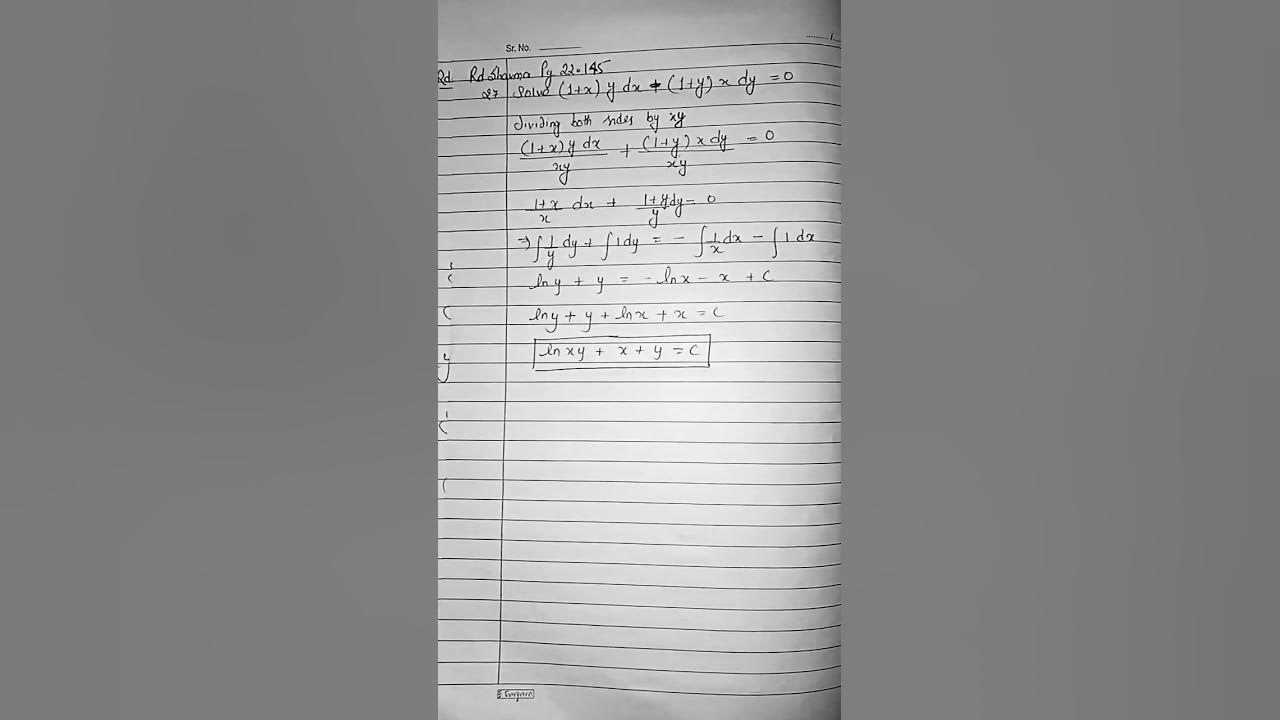 Sr. No.
Rd. Rd Sharma Pg 22.145
27 Solve (1+x) y dx + (1+y) x dy = 0
dividing both sides by xy
(1+x) y dx / xy + (1+y) x dy / xy = 0
1+x / x dx + 1+y / y dy = 0
⇒ ∫ 1/y dy + ∫ 1 dy = - ∫ 1/x dx - ∫ 1 dx
ln y + y = - ln x - x + C
ln y + y + ln x + x = C
ln xy + x + y = C